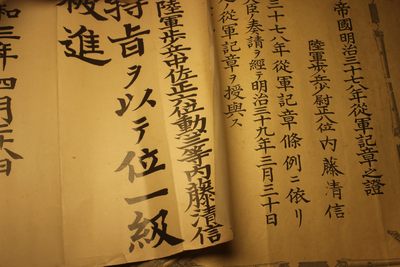 帝國明治三十七八年從軍記章之證
陸軍歩兵少尉正八位 内藤清信
三十七八年從軍記章條例ニ依リ
臣奏請ヲ經テ明治三十九年三月三十日
從軍記章ヲ授與ス
陸軍歩兵中佐正六位勳三等内藤清信
特旨ヲ以テ位一級
被進
和三年四月